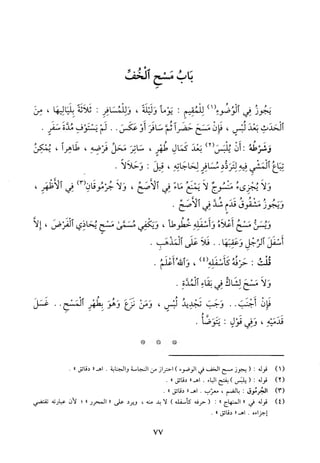 بَابُ مَسْحِ ٱلْخُفِّ
يَجُوزُ فِي ٱلْوُضُوءِ (١) لِلْمُقِيمِ : يَوْماً وَلَيْلَةً ، وَلِلْمُسَافِرِ : ثَلَاثَةً بِلَيَالِيهَا ، مِنَ
ٱلْحَدَثِ بَعْدَ لُبْسٍ ، فَإِنْ مَسَحَ حَضَراً ثُمَّ سَافَرَ أَوْ عَكَسَ . . لَمْ يَسْتَوْفِ مُدَّةَ سَفَرٍ .
وَشَرْطُهُ : أَنْ يُلْبَسَ (٢) بَعْدَ كَمَالِ طُهْرٍ ، سَاتِرَ مَحَلِّ فَرْضِهِ ، طَاهِراً ، يُمْكِنُ
تِبَاعُ ٱلْمَشْيِ فِيهِ لِتَرَدُّدِ مُسَافِرٍ لِحَاجَاتِهِ ، قِيلَ : وَحَلَالاً .
وَلَا يُجْزِىءُ مَنْسُوجٌ لَا يَمْنَعُ مَاءً فِي ٱلْأَصَحِّ ، وَلَا جُرْمُوقَانِ (٣) فِي ٱلْأَظْهَرِ ،
وَيَجُوزُ مَشْقُوقُ قَدَمٍ شُدَّ فِي ٱلْأَصَحِّ .
وَيُسَنُّ مَسْحُ أَعْلَاهُ وَأَسْفَلِهِ خُطُوطاً ، وَيَكْفِي مُسَمَّىٰ مَسْحٍ يُحَاذِي ٱلْفَرْضَ ، إِلَّا
أَسْفَلَ ٱلرِّجْلِ وَعَقِبَهَا . . فَلَا عَلَى ٱلْمَذْهَبِ .
قُلْتُ : حَرْفُهُ كَأَسْفَلِهِ (٤) ، وَٱللهُ أَعْلَمُ .
وَلَا مَسْحَ لِشَاكٍّ فِي بَقَاءِ ٱلْمُدَّةِ .
فَإِنْ أَجْنَبَ . . وَجَبَ تَجْدِيدُ لُبْسٍ ، وَمَنْ نَزَعَ وَهُوَ بِطُهْرِ ٱلْمَسْحِ . . غَسَلَ
قَدَمَيْهِ ، وَفِي قَوْلٍ : يَتَوَضَّأُ .
* * *
(١) قوله : ( يجوز مسح الخف في الوضوء ) احتراز من النجاسة والجنابة . اهـ « دقائق » .
(٢) قوله : ( يلبس ) بفتح الباء . اهـ « دقائق » .
(٣) الجُرْمُوق : بالضم ، معرّب . اهـ « دقائق » .
(٤) قوله في « المنهاج » : ( حرفه كأسفله ) لا بد منه ، ويرد على « المحرر » ؛ لأن عبارته تقتضي
إجزاءه . اهـ « دقائق » .
٧٧